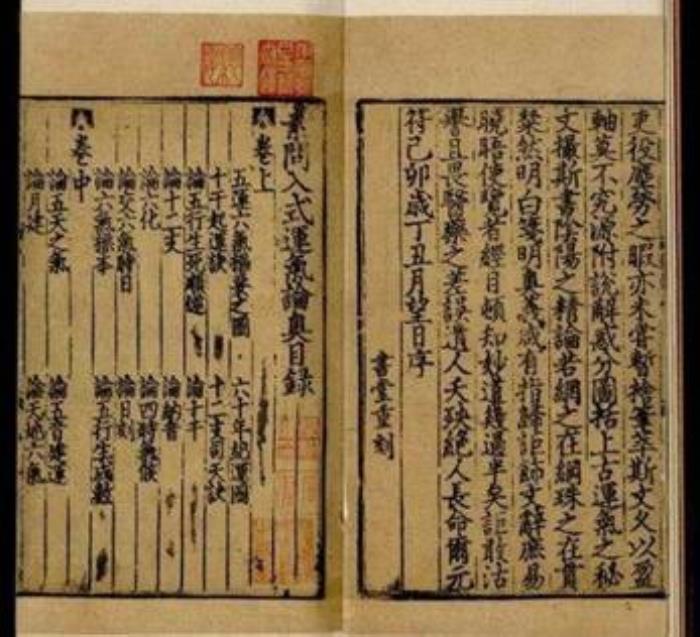 吏役塵勞之暇亦未嘗暫捨筆萃斯文久以盈
軸莫不究源附說解惑分圖括上古運氣之秘
文撮斯書陰陽之精論若網之在綱珠之在貫
粲然明白奥義咸有指歸詎師文辭庶易
曉晤使覽者經目頓知妙道幾過半矣詎敢沽
譽且畏醫藥之差誤遺人夭殃絕人長命爾元
符己卯歲丁丑月望日序
書堂重刻
素問入式運氣論奥目錄
卷上
五運六氣樞要之圖 六十年紀運圖
十干起運訣 十二支司天訣
論五行生死順逆 論十干
論十二支 論納音
論六化 論四時氣候
論交六氣時日 論日刻
論六氣標本 論五行生成數
卷中
論五天之氣 論五音建運
論月建 論天地六氣